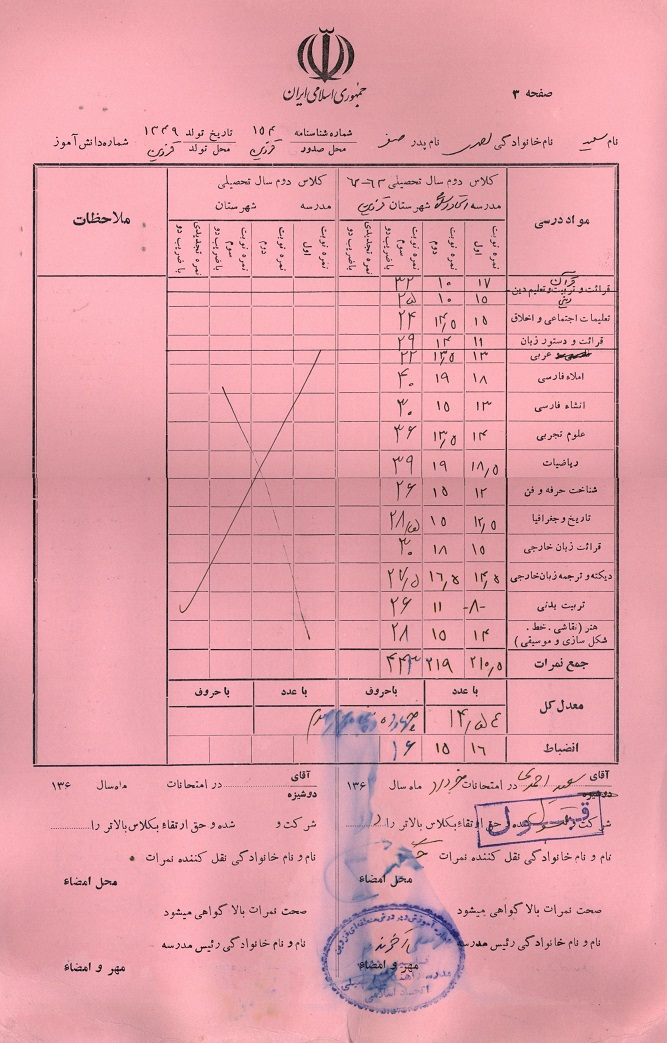 جمهوری اسلامی ایران
صفحه ۳
نام سعید نام خانوادگی نام پدر شماره شناسنامه ۱۵۴ تاریخ تولد ۱۳۴۹ شماره دانش آموز
محل صدور قزوین محل تولد قزوین
مواد درسی
کلاس دوم سال تحصیلی ۶۳-۶۲
کلاس دوم سال تحصیلی
ملاحظات
مدرسه شهرستان قزوین
مدرسه شهرستان
نمره نوبت اول نمره نوبت دوم نمره نوبت سوم با ضریب دو نمره تجدیدی با ضریب دو
نمره نوبت اول نمره نوبت دوم نمره نوبت سوم با ضریب دو نمره تجدیدی با ضریب دو
قرآن ۱۷ ۱۰ ۳۲
قرائت و تربیت و تعلیم دین
دینی ۱۵ ۱۰ ۲۵
تعلیمات اجتماعی و اخلاق ۱۵ ۱۴/۵ ۲۴
قرائت و دستور زبان ۱۱ ۱۴ ۲۹
عربی ۱۳ ۱۳/۵ ۲۲
املاء فارسی ۱۸ ۱۹ ۴۰
انشاء فارسی ۱۳ ۱۵ ۳۰
علوم تجربی ۱۴ ۱۳/۵ ۳۶
ریاضیات ۱۸/۵ ۱۹ ۳۹
شناخت حرفه و فن ۱۲ ۱۵ ۲۶
تاریخ و جغرافیا ۱۲/۵ ۱۵ ۲۸/۵
قرائت زبان خارجی ۱۵ ۱۸ ۳۰
دیکته و ترجمه زبان خارجی ۱۴/۵ ۱۶/۵ ۲۷/۵
تربیت بدنی -۸- ۱۱ ۲۶
هنر (نقاشی . خط . شکل سازی و موسیقی) ۱۴ ۱۵ ۲۸
جمع نمرات ۲۱۰/۵ ۲۱۹ ۴۴۳
معدل کل
با عدد با حروف با عدد با حروف
۱۴/۵۴ چهارده
انضباط ۱۶ ۱۵ ۱۶
آقای
دوشیزه
در امتحانات خرداد ماه سال ۱۳۶
شرکت و شده و حق ارتقاء بکلاس بالاتر را
قبول
نام و نام خانوادگی نقل کننده نمرات
محل امضاء
صحت نمرات بالا گواهی میشود
نام و نام خانوادگی رئیس مدرسه
مهر و امضاء
آقای
دوشیزه
در امتحانات ماه سال ۱۳۶
شرکت و شده و حق ارتقاء بکلاس بالاتر را
نام و نام خانوادگی نقل کننده نمرات
محل امضاء
صحت نمرات بالا گواهی میشود
نام و نام خانوادگی رئیس مدرسه
مهر و امضاء